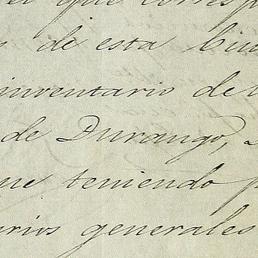 que corresp
de esta Ciu
inventario de
de Durango,
teniendo p
generales